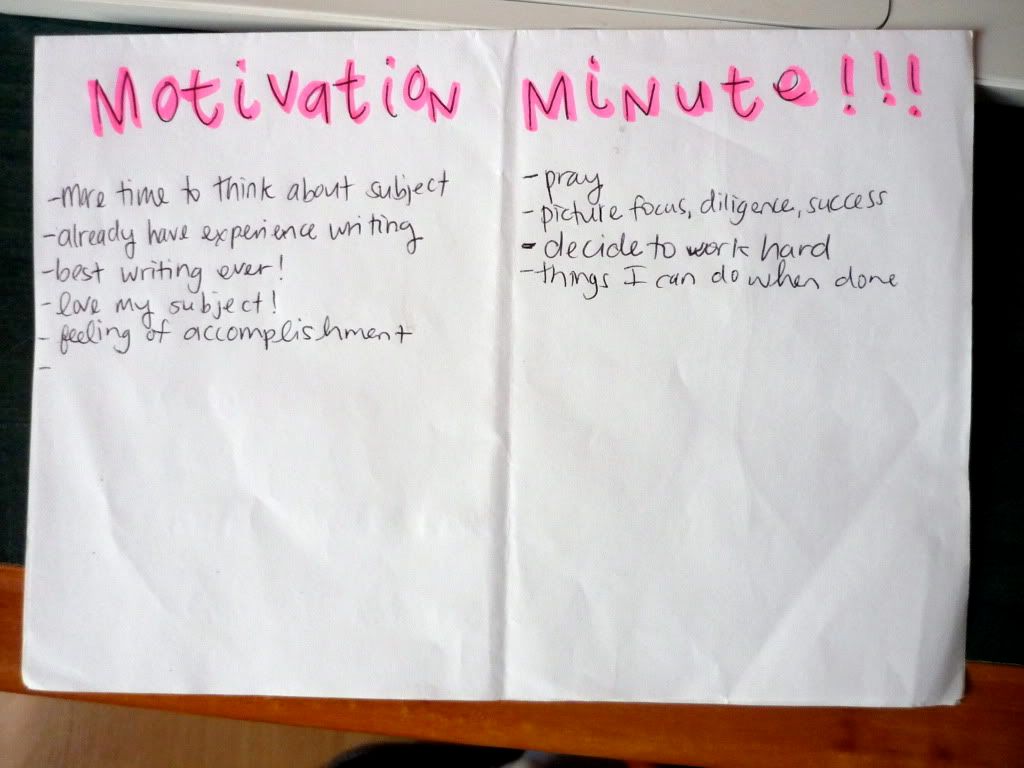 Motivation Minute!!!
-more time to think about subject
-already have experience writing
-best writing ever!
-love my subject!
-feeling of accomplishment
-
-pray
-picture focus, diligence, success
-decide to work hard
-things I can do when done